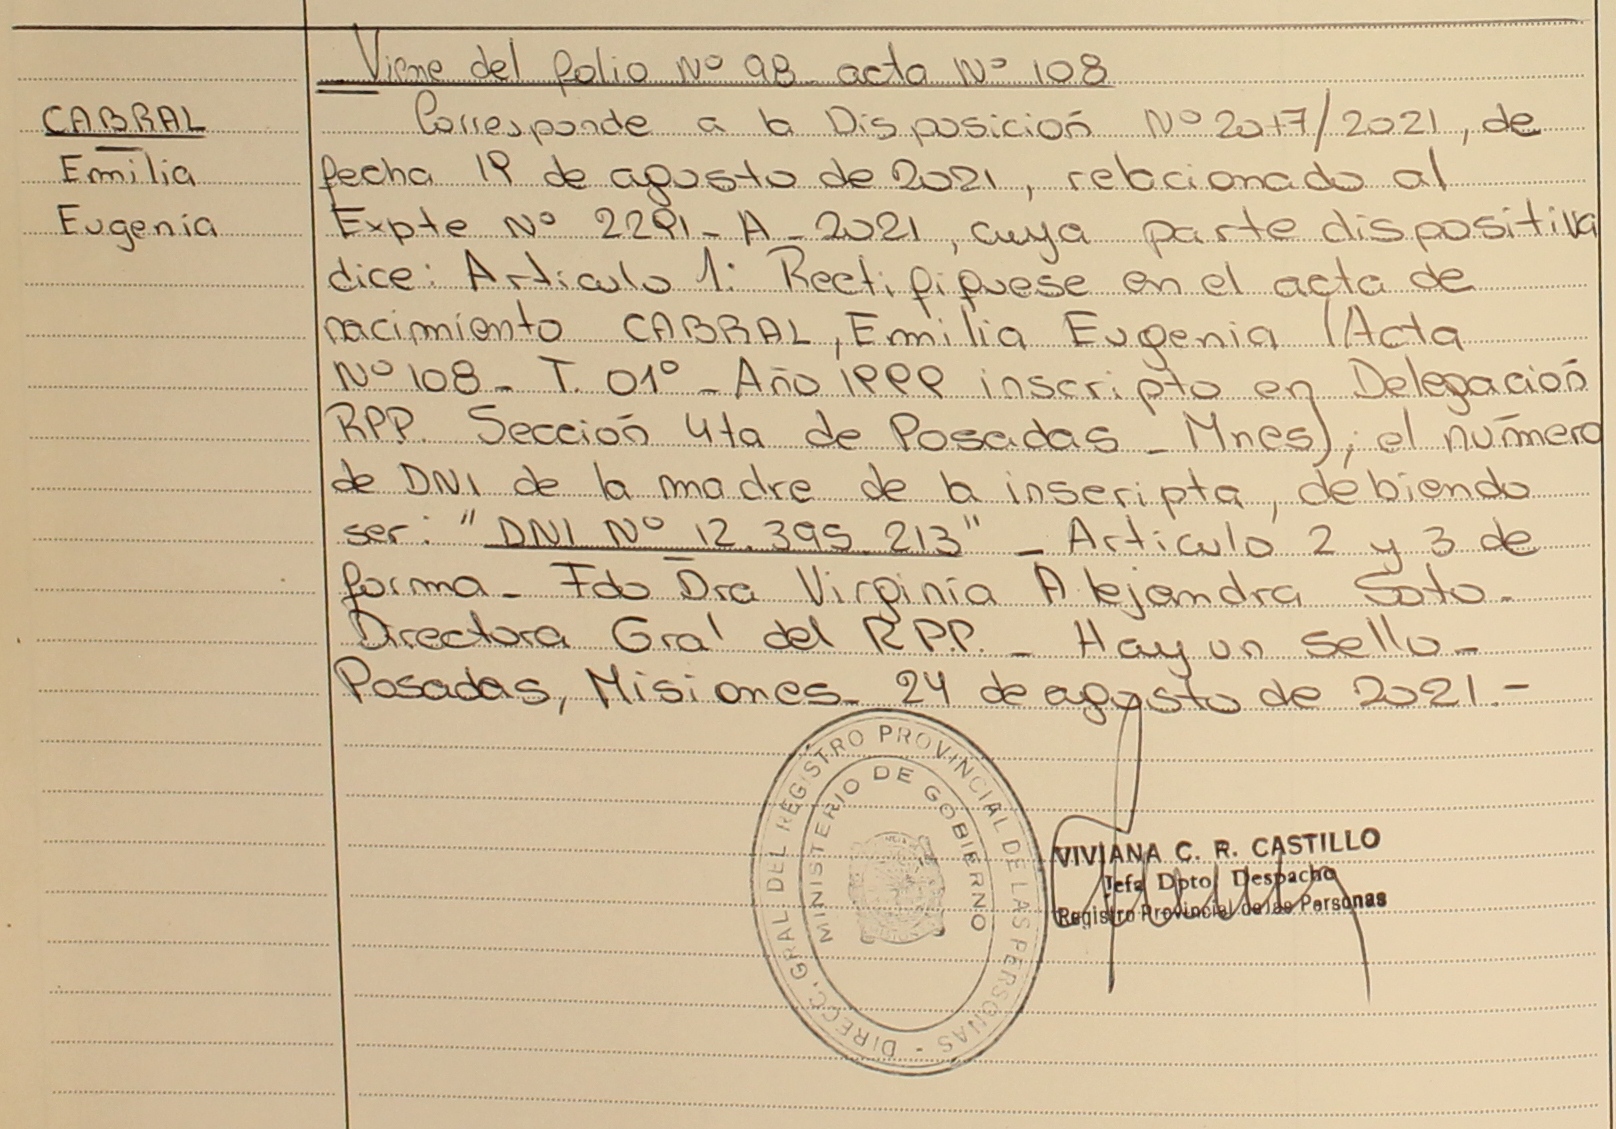 Viene del folio Nº 98 acta Nº 108
CABRAL
Emilia
Eugenia
Corresponde a la Disposición Nº 2017/2021, de
fecha 19 de agosto de 2021, relacionado al
Expte Nº 2291-A-2021, cuya parte dispositiva
dice: Articulo 1: Rectifiquese en el acta de
nacimiento CABRAL, Emilia Eugenia (Acta
Nº 108 - T. 01º - Año 1999 inscripto en Delegación
RPP. Sección 4ta de Posadas - Mnes), el número
de DNI de la madre de la inscripta, debiendo
ser: "DNI Nº 12.395.213" - Articulo 2 y 3 de
forma - Fdo Dra Virginia Alejandra Soto -
Directora Gral del R.P.P. - Hay un sello -
Posadas, Misiones - 24 de agosto de 2021.-
DIRECC. GRAL DEL REGISTRO PROVINCIAL DE LAS PERSONAS -
MINISTERIO DE GOBIERNO
VIVIANA C. R. CASTILLO
Jefa Dpto Despacho
Registro Provincial de las Personas